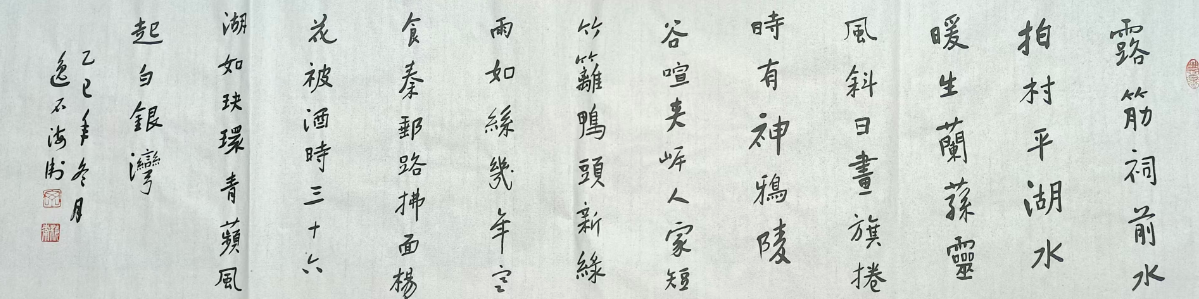 露筋祠前水
拍村平湖水
暖生蘭蓀靈
風斜日畫旗捲
時有神鴉陵
谷喧夾岸人家短
竹籬鴨頭新綠
雨如絲幾年寒
食秦郵路拂面楊
花被酒時三十六
湖如玦環青蘋風
起白銀灣
乙巳年冬月
逸石海